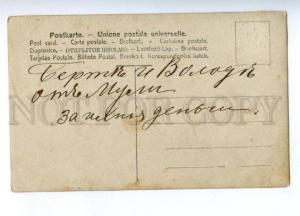 Postkarte. – Union postale universelle.
Post card. – Carte postale. – Brefkort. – Cartolina postale.
Dopisnice. – ОТКРЫТОЕ ПИСЬМО. – Levelező-Lap. – Briefkaart.
Tarjetas Postale. Bilhete Postal. Brevkort. Korespondenční lístek.
и Володѣ
отъ Муси
деньги.